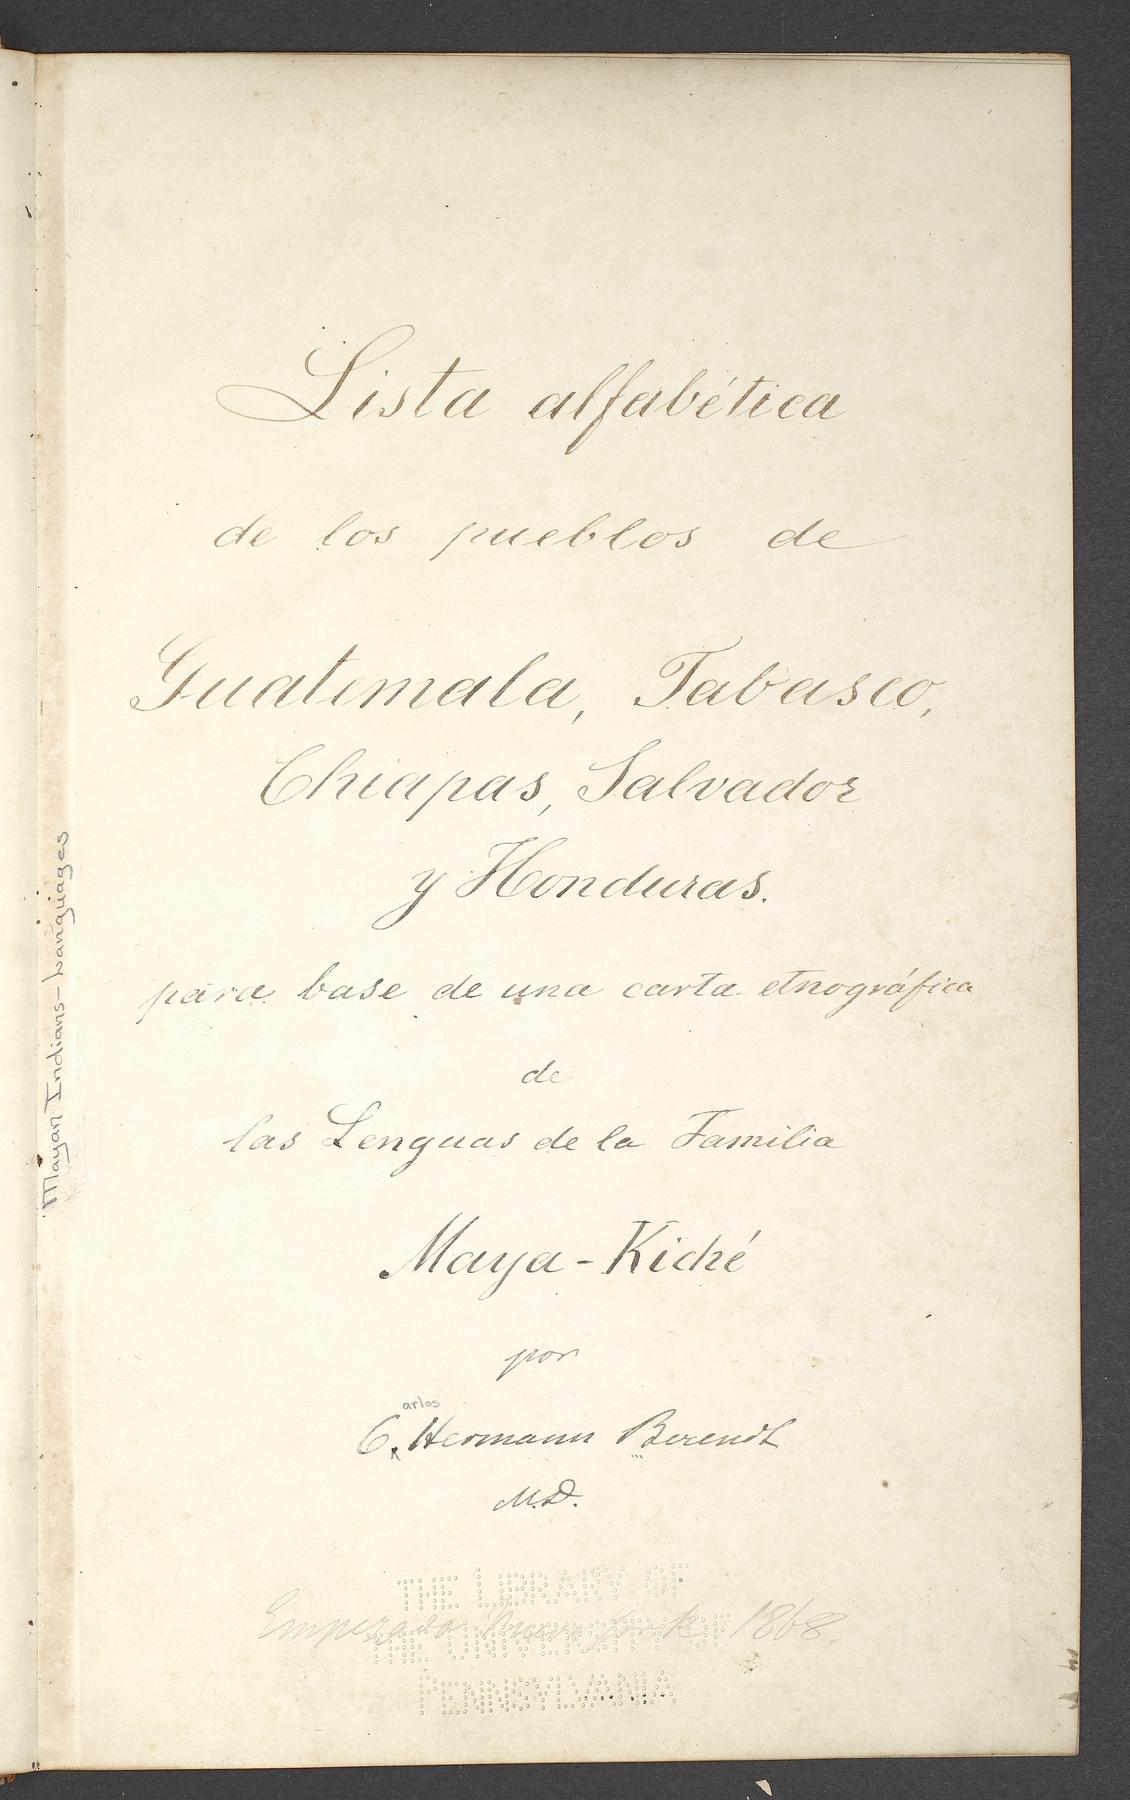 Lista alfabética
de los pueblos de
Guatemala, Tabasco,
Chiapas, Salvador
y Honduras.
para base de una carta etnográfica
de
las Lenguas de la Familia
Maya-Kiché
por
arlos
C. Hermann Berendt
M.D.
Empezado Nueva York 1868.
THE LIBRARY OF
THE UNIVERSITY OF
PENNSYLVANIA
Mayan Indians-Languages